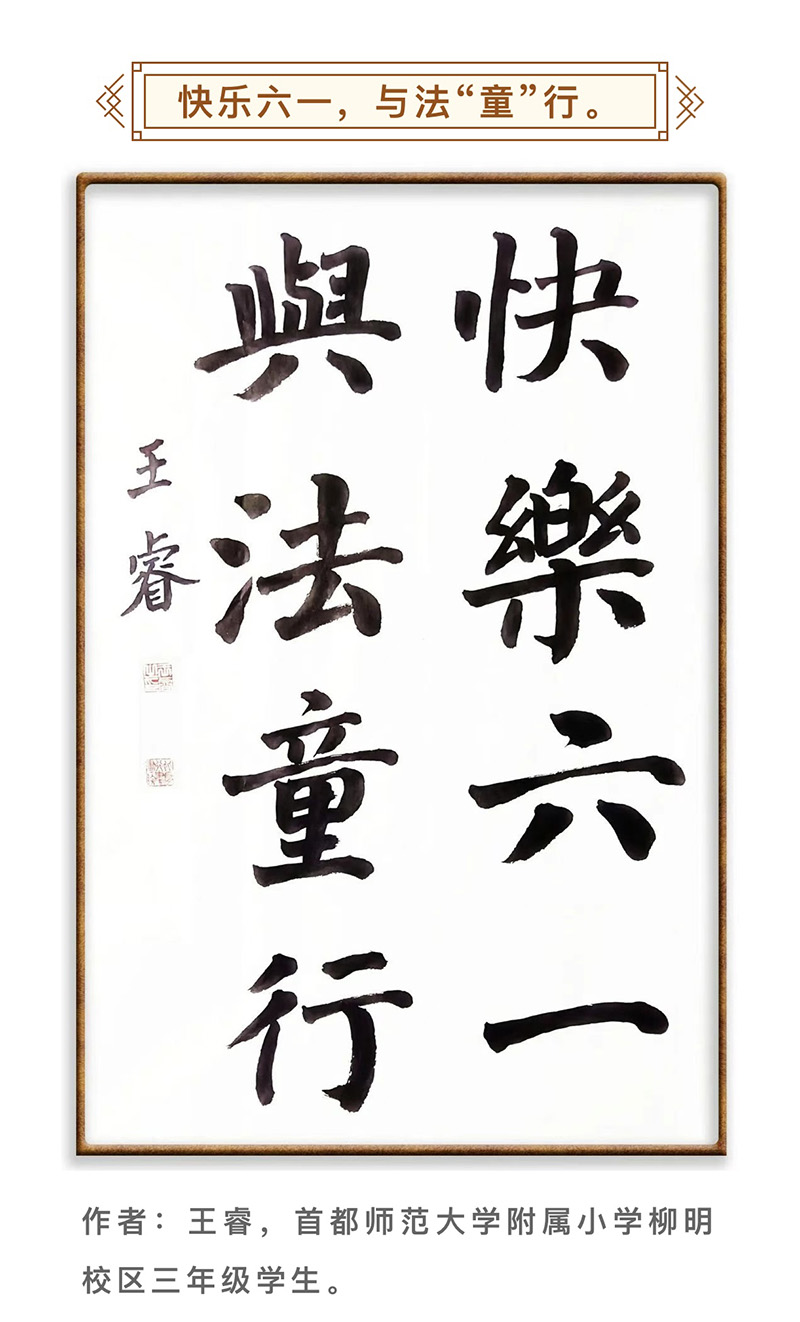 快乐六一，与法“童”行。
快樂六一
與法童行
王睿
作者：王睿，首都师范大学附属小学柳明
校区三年级学生。